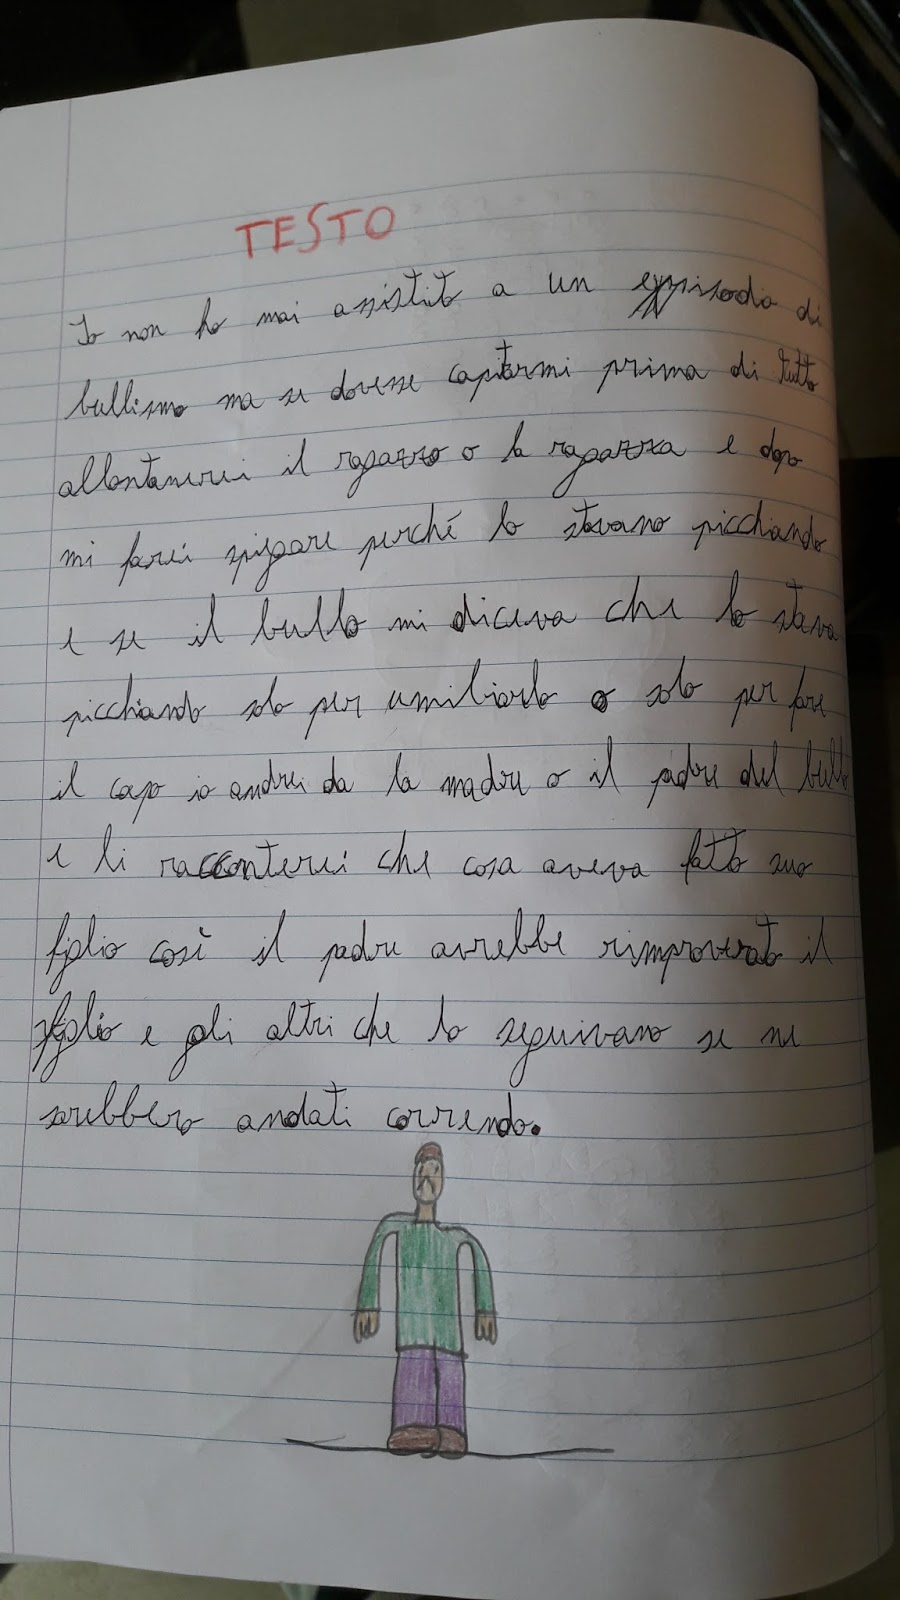 TESTO
Io non ho mai assistito a un eppisodio di
bullismo ma se dovesse capitarmi prima di tutto
allontanerei il ragazzo o la ragazza e dopo
mi farei spigare perché lo stavano picchiando
e se il bullo mi diceva che lo stava
picchiando solo per umiliarlo o solo per fare
il capo io andrei da la madre o il padre del bullo
e li racconterei che cosa aveva fatto suo
figlio così il padre avrebbe rimproverato il
figlio e gli altri che lo seguivano se ne
sarebbero andati correndo.